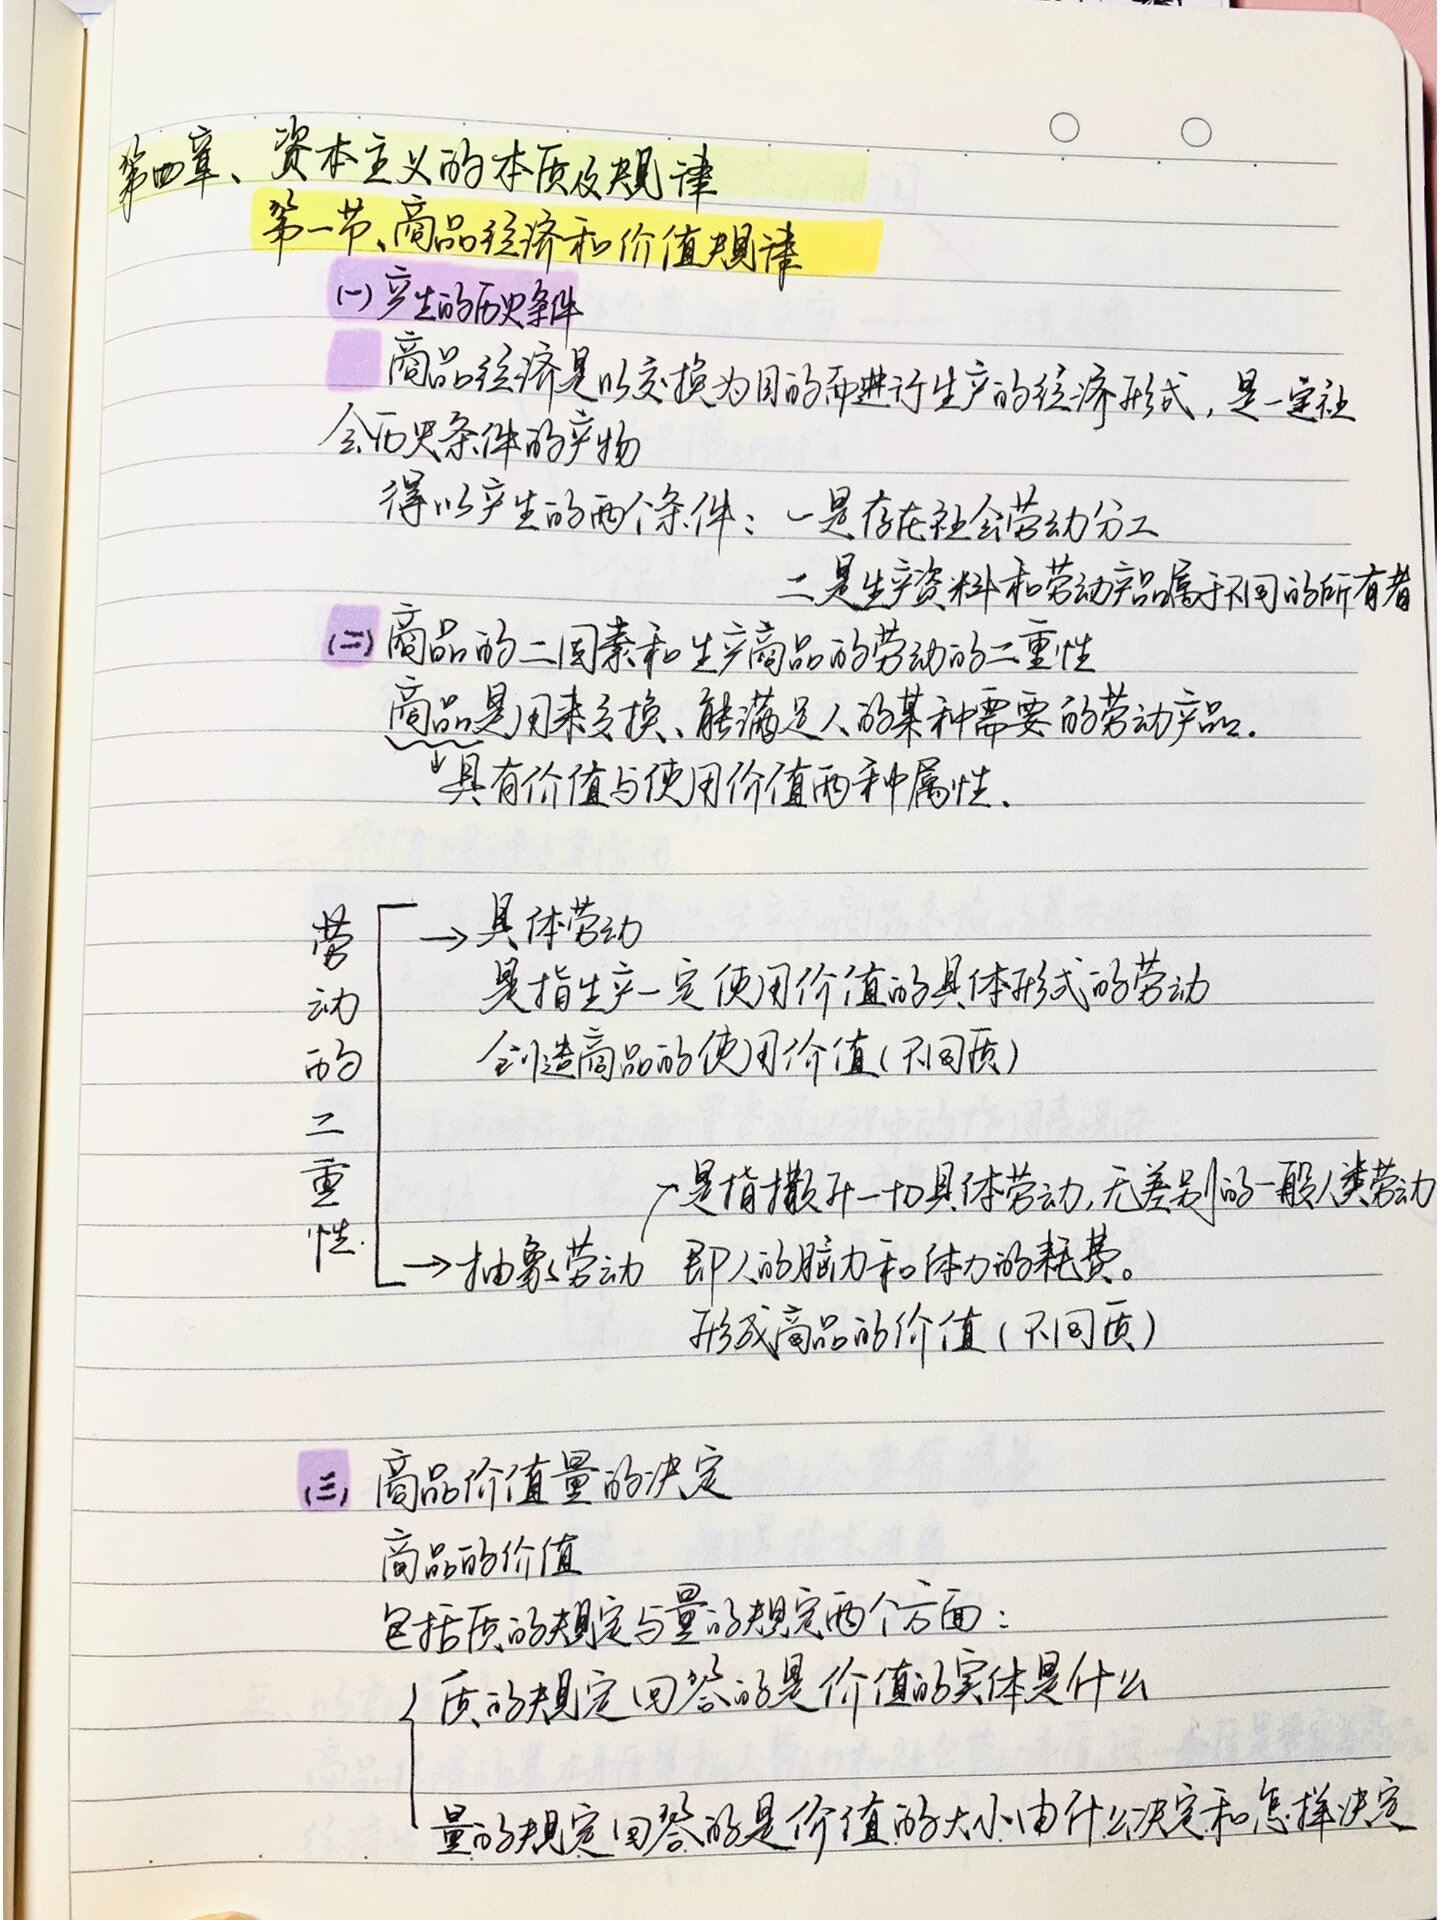 第四章、资本主义的本质及规律
第一节、商品经济和价值规律
(一)产生的历史条件
商品经济是以交换为目的而进行生产的经济形式，是一定社
会历史条件的产物
得以产生的两个条件：一是存在社会劳动分工
二是生产资料和劳动产品属于不同的所有者
(二)商品的二因素和生产商品的劳动的二重性
商品是用来交换、能满足人的某种需要的劳动产品.
↓具有价值与使用价值两种属性.
劳动的二重性.
→具体劳动
是指生产一定使用价值的具体形式的劳动
创造商品的使用价值(不同质)
是指撇开一切具体劳动,无差别的一般人类劳动
→抽象劳动 即人的脑力和体力的耗费。
形成商品的价值(不同质)
(三)商品价值量的决定
商品的价值
包括质的规定与量的规定两个方面：
质的规定回答的是价值的实体是什么
量的规定回答的是价值的大小由什么决定和怎样决定